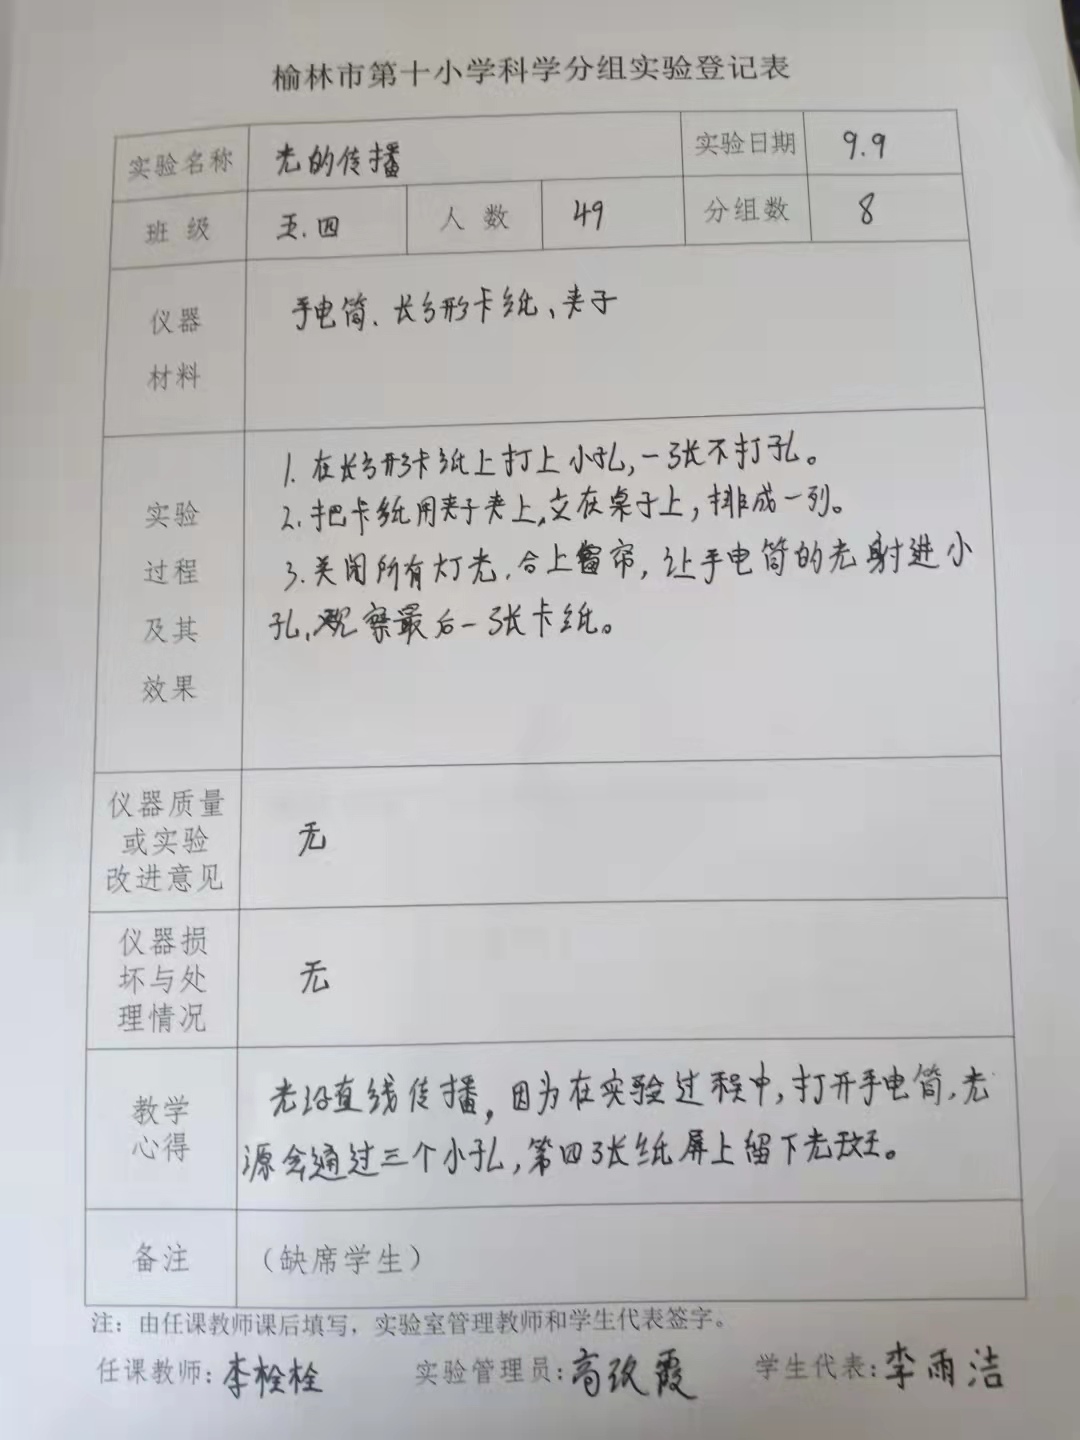 榆林市第十小学科学分组实验登记表
实验名称 光的传播 实验日期 9.9
班 级 五.四 人 数 49 分组数 8
仪器
材料
手电筒、长方形卡纸、夹子
实验
过程
及其
效果
1.在长方形卡纸上打上小孔,一张不打孔。
2.把卡纸用夹子夹上,立在桌子上,排成一列。
3.关闭所有灯光,合上窗帘,让手电筒的光射进小
孔,观察最后一张卡纸。
仪器质量
或实验
改进意见
无
仪器损
坏与处
理情况
无
教学
心得
光沿直线传播,因为在实验过程中,打开手电筒,光
源会通过三个小孔,第四张纸屏上留下光斑。
备注 (缺席学生)
注:由任课教师课后填写,实验室管理教师和学生代表签字。
任课教师:李栓栓 实验管理员:高改霞 学生代表:李雨洁